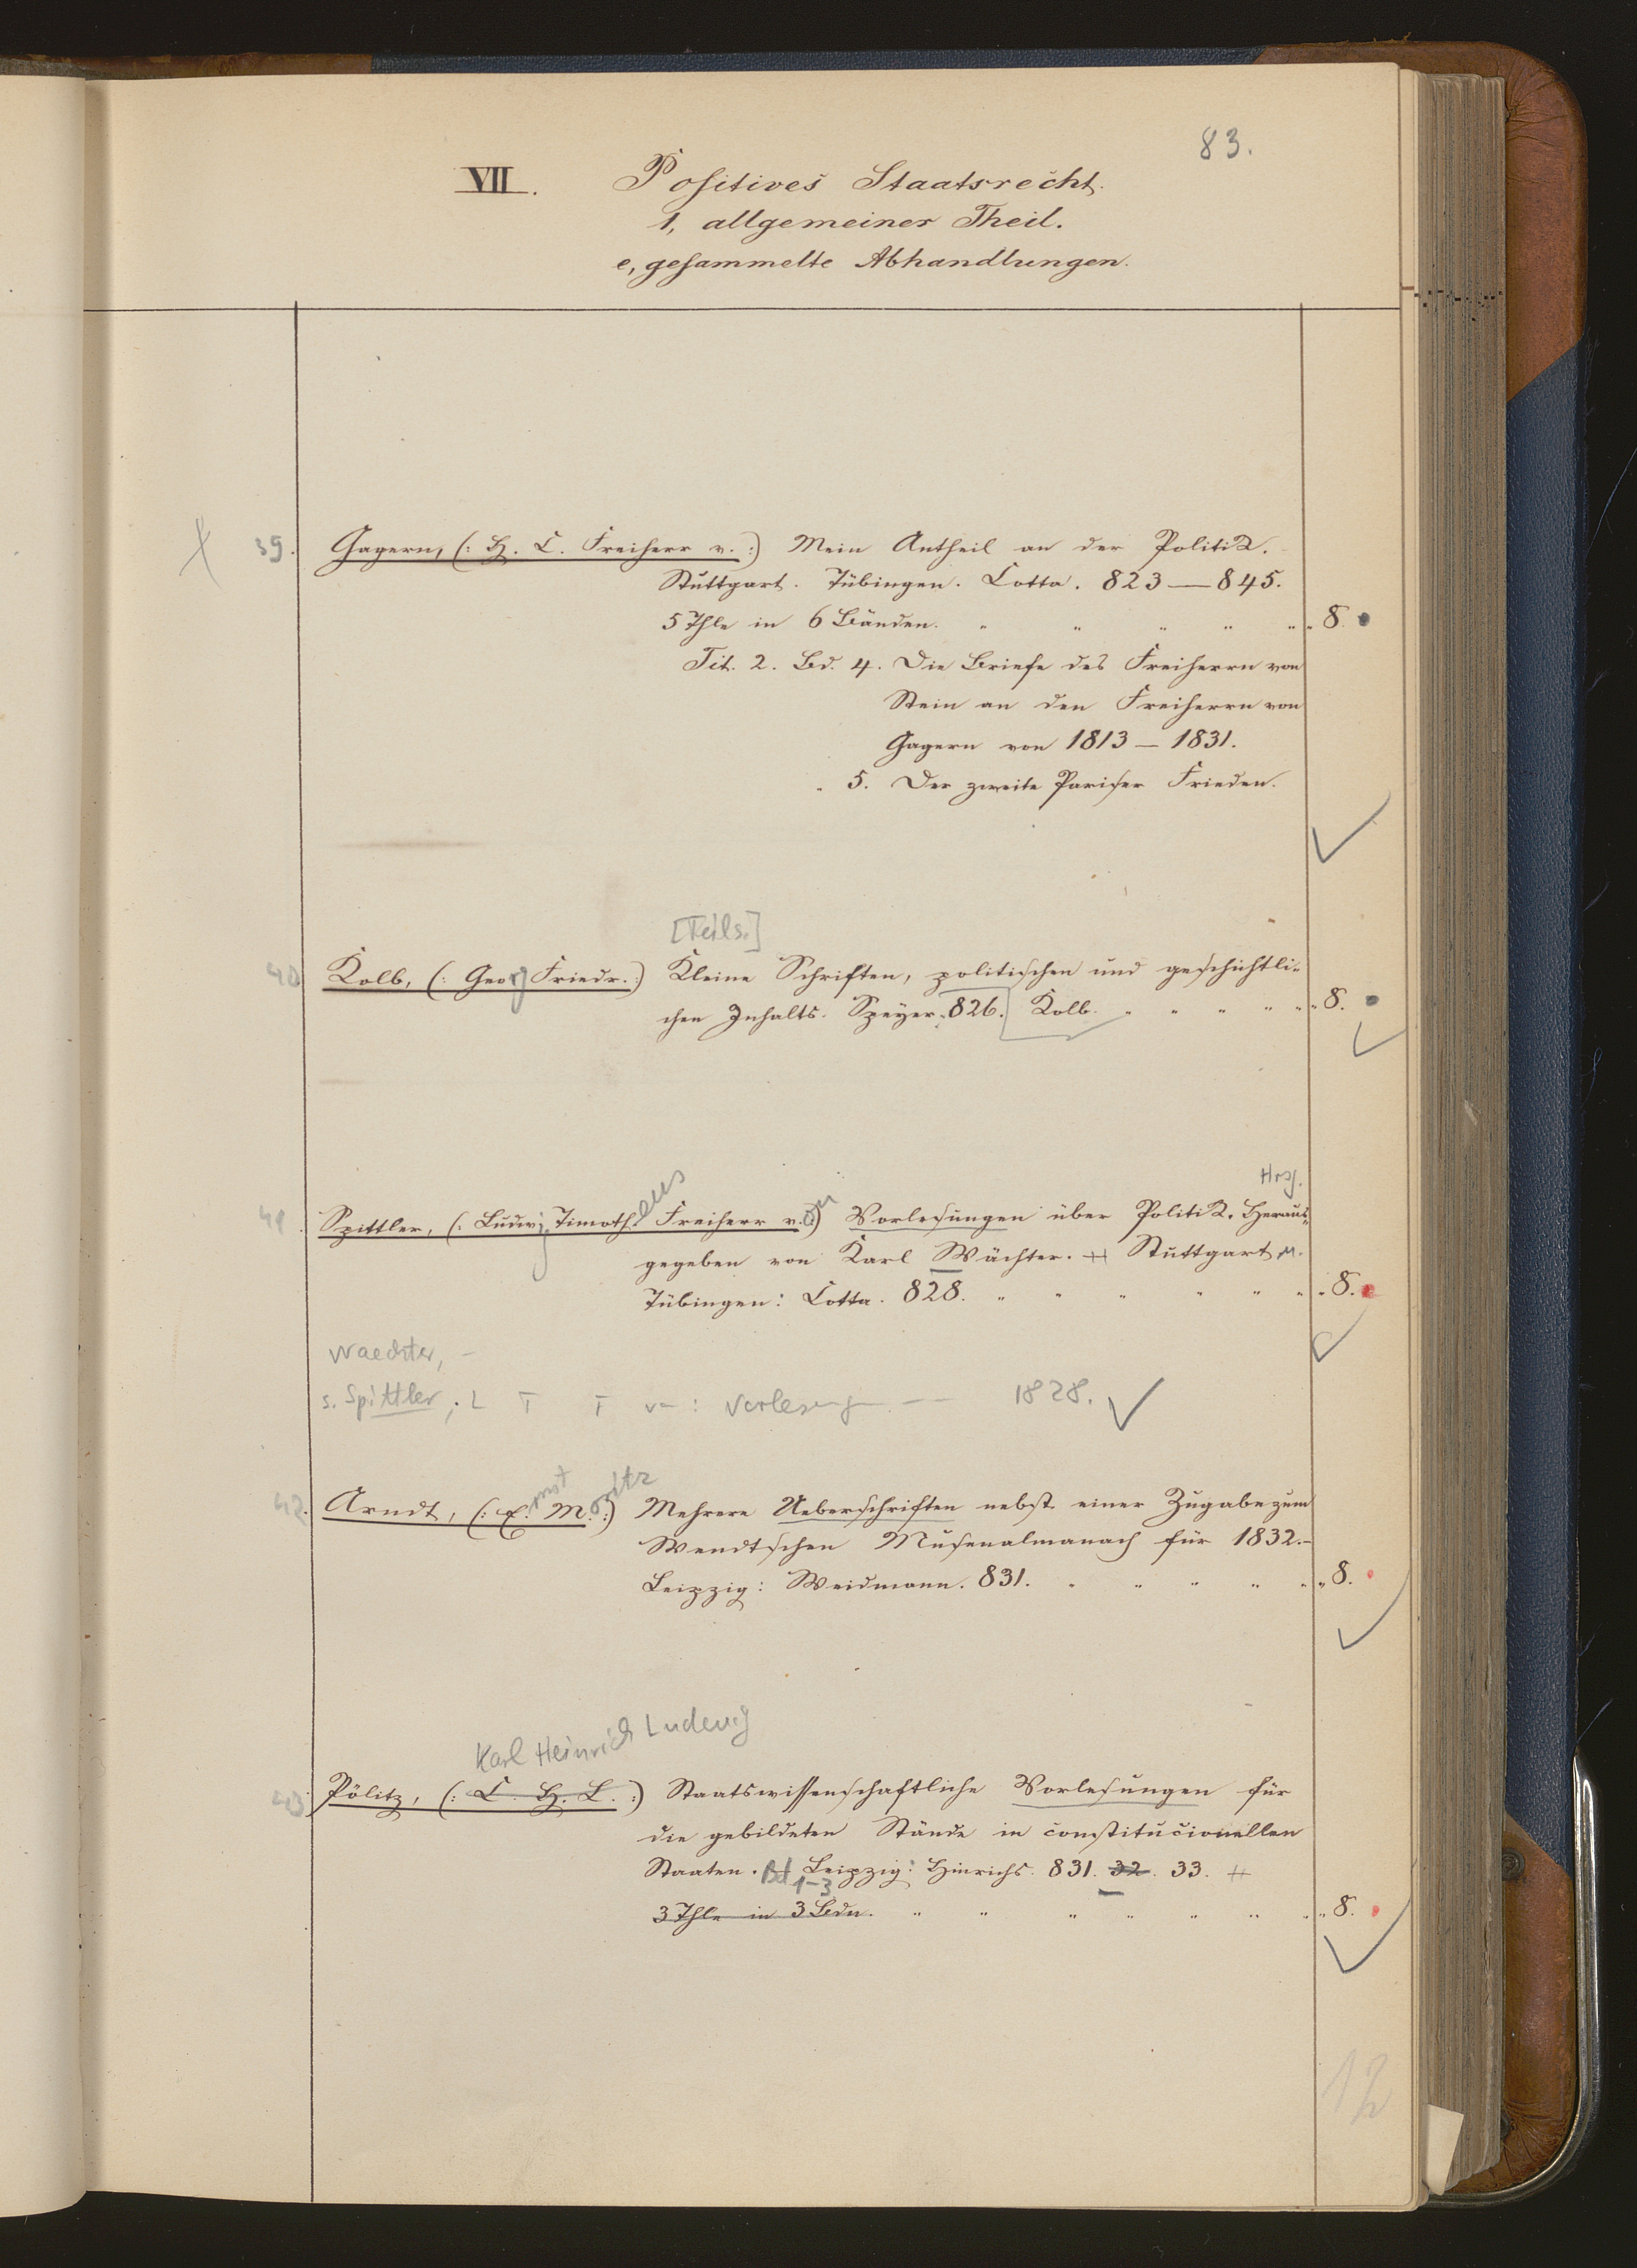 83.
VII. Positives Staatsrecht.
1, allgemeiner Theil.
e, gesammelte Abhandlungen.
39. Gagern, (: H. C. Freiherr v. :) Mein Antheil an der Politik.
Stuttgart. Tübingen. Cotta. 823—845.
5 Thle in 6 Bänden. " " " " " " 8.
Tit. 2. Bd. 4. Die Briefe des Freiherrn von
Stein an den Freiherrn von
Gagern von 1813—1831.
" 5. Der zweite Pariser Frieden.
[Teils.]
40 Kolb, (: Georg Friedr. :) Kleine Schriften, politischen und geschichtli-
chen Inhalts. Speyer. 826. Kolb. " " " " " " 8.
Hrsg.
41. Spittler, (: Ludwig Timotheus Freiherr v. :) Vorlesungen über Politik. Heraus-
gegeben von Karl Wächter. # Stuttgart u.
Tübingen: Cotta. 828. " " " " " " " 8.
Waechter, –
s. Spittler, L T F v– : Vorlesung –– 1828.
42. Arndt, (: Ernst Moritz :) Mehrere Ueberschriften nebst einer Zugabe zum
Wendtschen Musenalmanach für 1832.–
Leipzig: Weidmann. 831. " " " " " " 8.
Karl Heinrich Ludewig
43. Pölitz, (: C. H. L. :) Staatswissenschaftliche Vorlesungen für
die gebildeten Stände in constitucionellen
Staaten. Bd 1-3 Leipzig: Hinrichs. 831. 32. 33. #
3 Thle in 3 Bdn. " " " " " " " " 8.
12